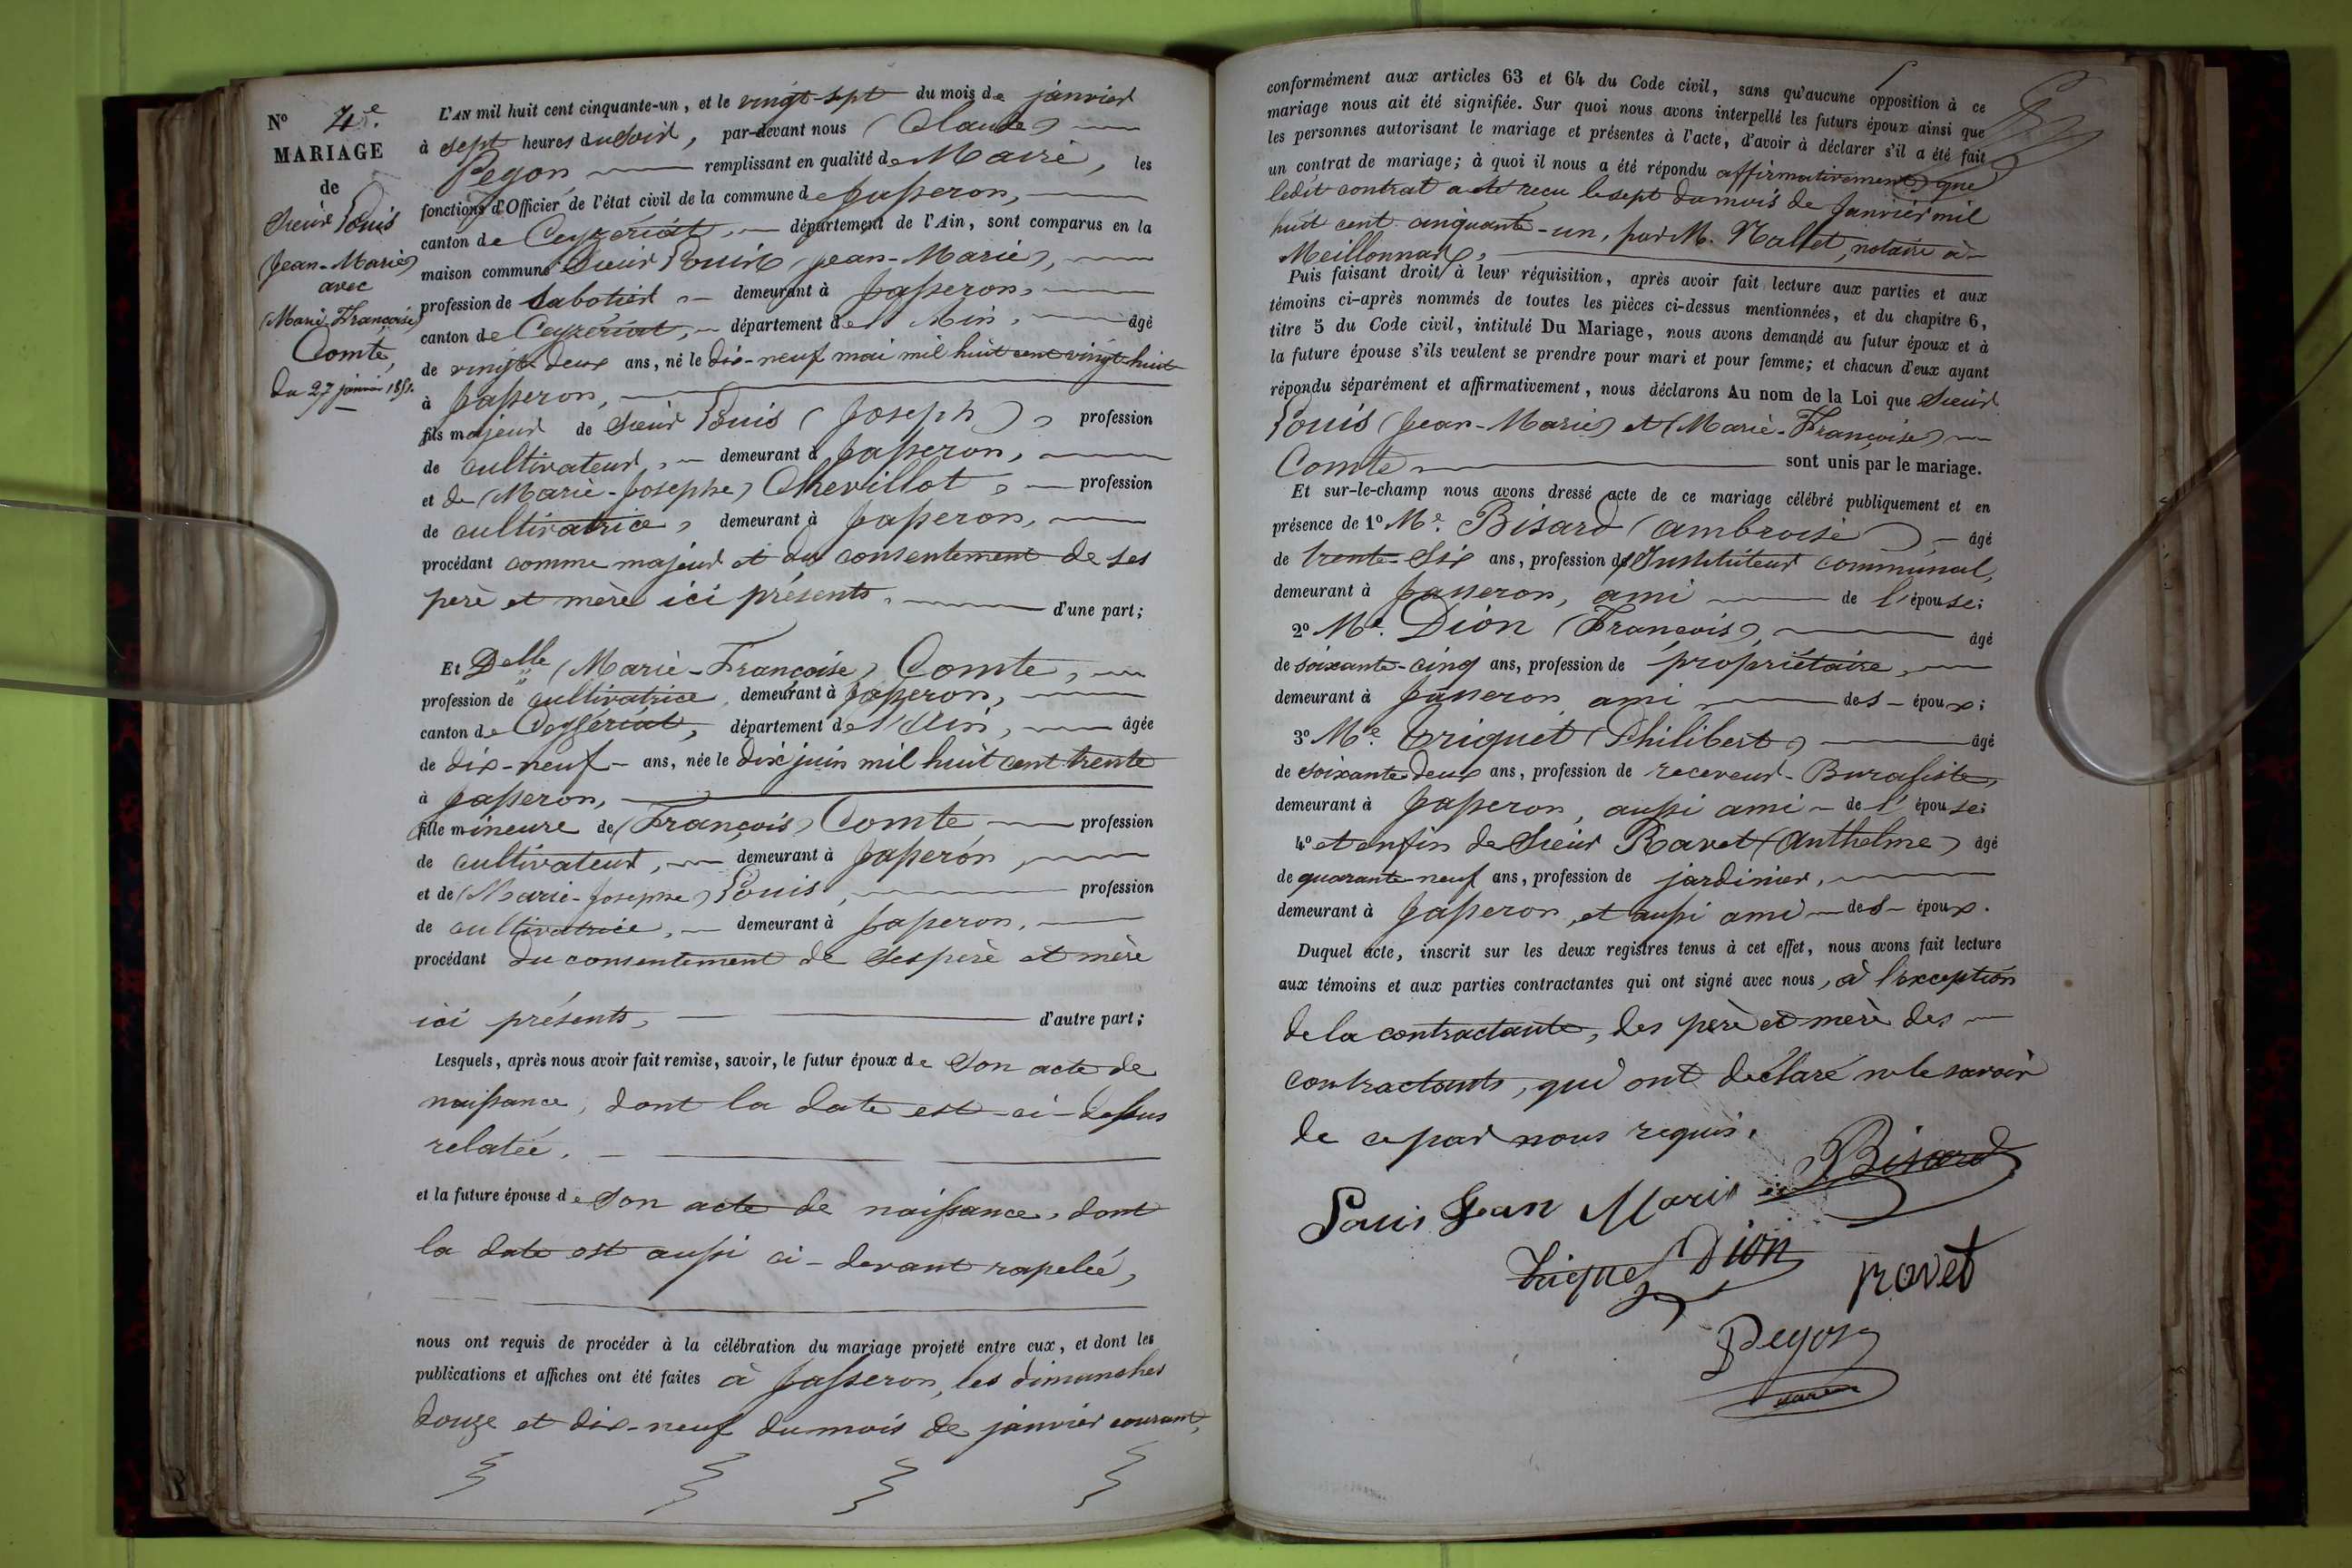 Nº 4e.
MARIAGE
de
Sieur Louis
(Jean-Marie)
avec
(Marie-Françoise)
Comte,
Du 27 janvier 1851.
L'AN mil huit cent cinquante-un, et le vingt-sept du mois de janvier
à sept heures du soir, par-devant nous (Claude)
Pegon remplissant en qualité de Maire, les
fonctions d'Officier de l'état civil de la commune de Jasseron,
canton de Ceyzériat, département de l'Ain, sont comparus en la
maison commune Sieur Louis (Jean-Marie),
profession de Sabotier, demeurant à Jasseron,
canton de Ceyzériat, département de l'Ain, âgé
de vingt-deux ans, né le dix-neuf mai mil huit cent vingt-huit
à Jasseron,
fils majeur de Sieur Louis (Joseph), profession
de cultivateur, demeurant à Jasseron,
et de (Marie-Josephe) Chevillot, profession
de cultivatrice, demeurant à Jasseron,
procédant comme majeur et du consentement de ses
père et mère ici présents. d'une part;
Et Delle (Marie-Françoise) Comte,
profession de cultivatrice, demeurant à Jasseron,
canton de Ceyzériat, département de l'Ain, âgée
de dix-neuf ans, née le dix juin mil huit cent trente
à Jasseron,
fille mineure de (François) Comte profession
de cultivateur, demeurant à Jasseron,
et de (Marie-Josephe) Louis, profession
de cultivatrice, demeurant à Jasseron,
procédant du consentement de ses père et mère
ici présents, d'autre part;
Lesquels, après nous avoir fait remise, savoir, le futur époux de Son acte de
naissance, dont la date est ci-dessus
relatée.
et la future épouse de Son acte de naissance, dont
la date est aussi ci-devant rapelée,
nous ont requis de procéder à la célébration du mariage projeté entre eux, et dont les
publications et affiches ont été faites à Jasseron, les dimanches
douze et dix-neuf du mois de janvier courant,
conformément aux articles 63 et 64 du Code civil, sans qu'aucune opposition à ce
mariage nous ait été signifiée. Sur quoi nous avons interpellé les futurs époux ainsi que
les personnes autorisant le mariage et présentes à l'acte, d'avoir à déclarer s'il a été fait
un contrat de mariage; à quoi il nous a été répondu affirmativement que
ledit contrat a été reçu le sept du mois de Janvier mil
huit cent cinquante-un, par M. Nallet, notaire à
Meillonnas,
Puis faisant droit à leur réquisition, après avoir fait lecture aux parties et aux
témoins ci-après nommés de toutes les pièces ci-dessus mentionnées, et du chapitre 6,
titre 5 du Code civil, intitulé Du Mariage, nous avons demandé au futur époux et à
la future épouse s'ils veulent se prendre pour mari et pour femme; et chacun d'eux ayant
répondu séparément et affirmativement, nous déclarons Au nom de la Loi que Sieur
Louis (Jean-Marie) et (Marie-Françoise)
Comte sont unis par le mariage.
Et sur-le-champ nous avons dressé acte de ce mariage célébré publiquement et en
présence de 1º Mr. Bisard (ambroise), âgé
de trente-six ans, profession d'Instituteur communal,
demeurant à Jasseron, ami de l'épouse;
2º Mr. Dion (François), âgé
de soixante-cinq ans, profession de propriétaire,
demeurant à Jasseron, ami des époux;
3º Mr. Triquet (Philibert) âgé
de soixante-deux ans, profession de receveur-Buraliste,
demeurant à Jasseron, aussi ami de l'épouse;
4º et enfin de Sieur Ravet (Anthelme) âgé
de quarante-neuf ans, profession de jardinier,
demeurant à Jasseron, et aussi ami des époux.
Duquel acte, inscrit sur les deux registres tenus à cet effet, nous avons fait lecture
aux témoins et aux parties contractantes qui ont signé avec nous, à l'exception
de la contractante, des père et mère des
contractants, qui ont déclaré ne le savoir
de ce par nous requis.
Bisard
Louis Jean Marie
Triquet Dion ravet
Pegon
maire